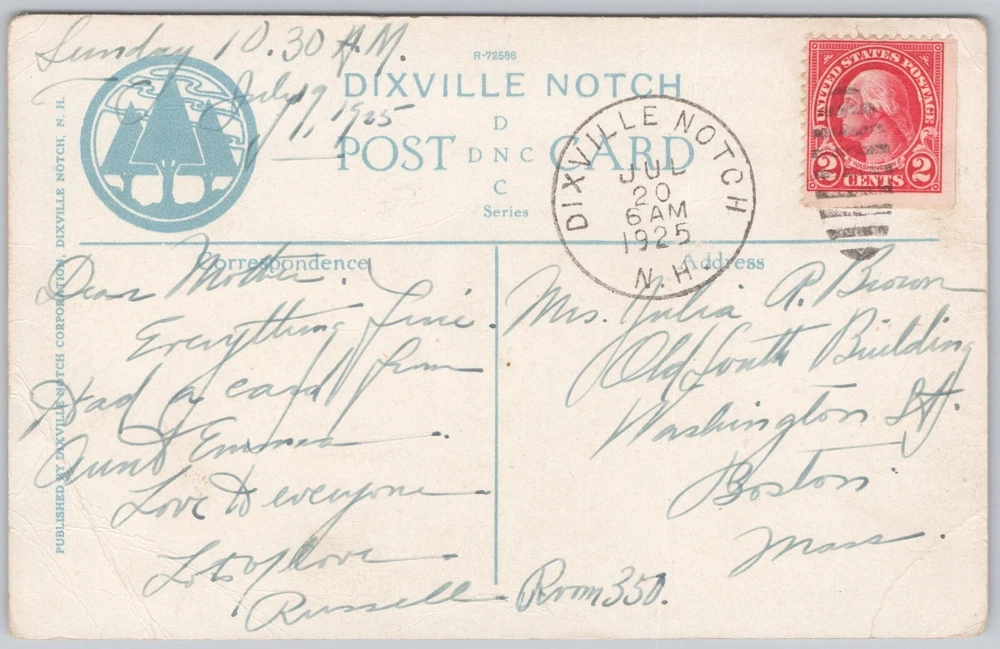 Sunday 10.30 A.M.
July 19, 1925
R-72586
DIXVILLE NOTCH
POST CARD
D
D N C
C
Series
DIXVILLE NOTCH
JUL
20
6 AM
1925
N.H.
UNITED STATES POSTAGE
WASHINGTON
2 CENTS 2
PUBLISHED BY DIXVILLE NOTCH CORPORATION, DIXVILLE NOTCH, N. H.
Correspondence
Dear Mother.
Everything fine.
Had a card from
Aunt Emma.
Love to everyone
Lots of love
Russell
Address
Mrs. Julia A. Brown
Old South Building
Washington St.
Boston
Mass.
Room 350.